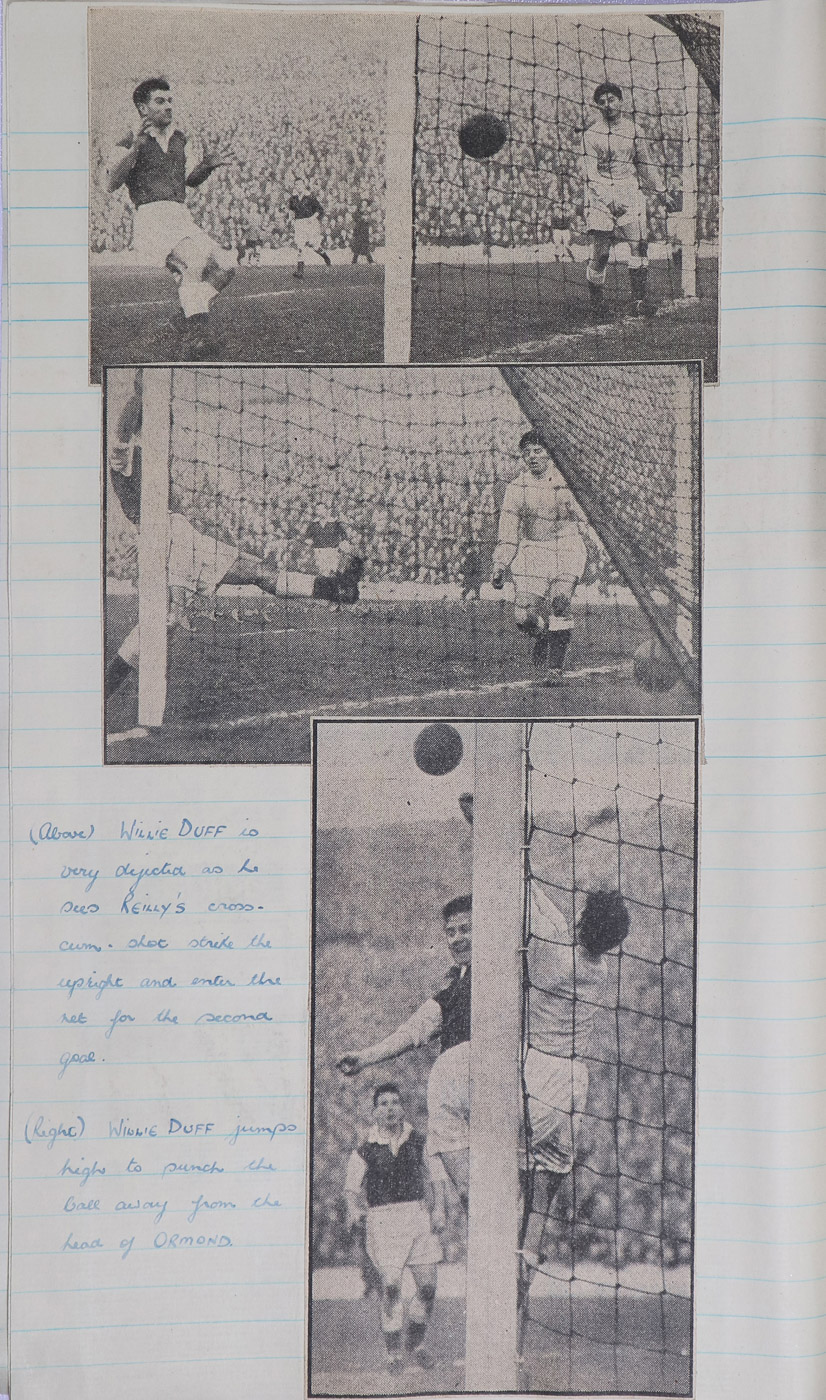 (Above) WILLIE DUFF is
very dejected as he
sees REILLY'S cross-
cum-shot strike the
upright and enter the
net for the second
goal.
(Right) WILLIE DUFF jumps
high to punch the
ball away from the
head of ORMOND.